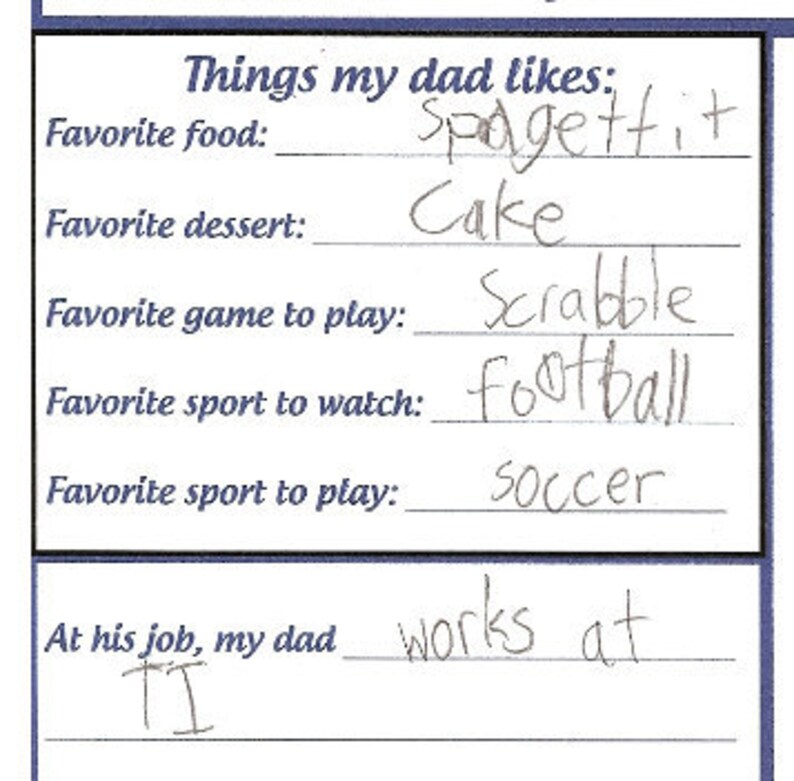 Things my dad likes:
Favorite food: Spagettit
Favorite dessert: Cake
Favorite game to play: Scrabble
Favorite sport to watch: football
Favorite sport to play: soccer
At his job, my dad works at
TI